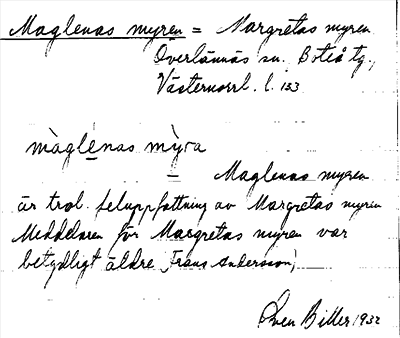 Maglenas myren = Margretas myren
Överlännäs sn. Boteå tg.,
Västernorrl. l. 133
màglénas mỳra
Maglenas myren
är trol. feluppfattning av Margretas myren
Meddelaren för Margretas myren var
betydligt äldre, Frans Andersson,
Sven Biller 1932